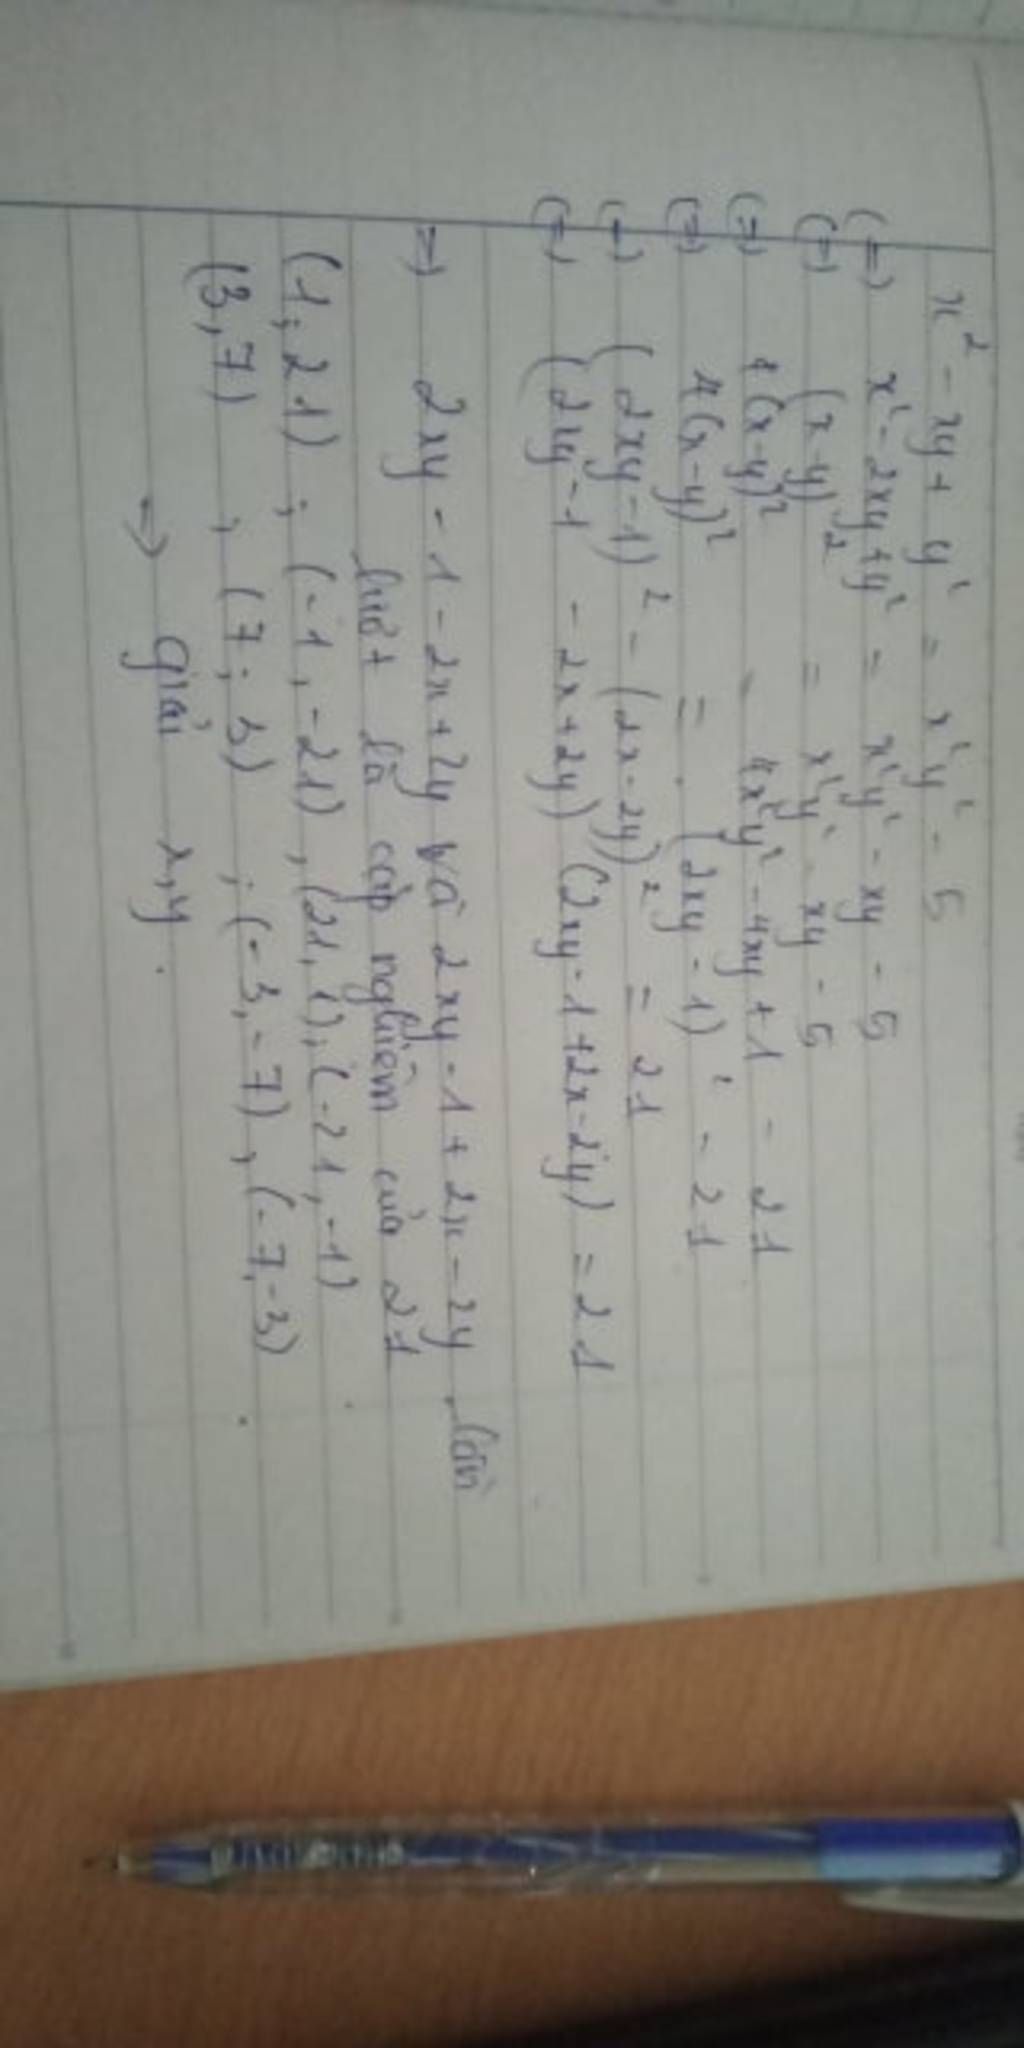 x² - xy + y² = x²y² - 5
(=) x² - 2xy + y² = x²y² - xy - 5
(=) (x-y)² = x²y² - xy - 5
(=) 4(x-y)² = 4x²y² - 4xy + 1 - 21
(=) 4(x-y)² = (2xy - 1)² - 21
(=) (2xy - 1)² - (2x - 2y)² = 21
(=) (2xy - 1 - 2x + 2y) (2xy - 1 + 2x - 2y) = 21
=) 2xy - 1 - 2x + 2y và 2xy - 1 + 2x - 2y, lần
lượt là cặp nghiệm của 21
(1; 21) ; (-1, -21) , (21, 1), (-21, -1)
(3, 7) , (7; 3) ; (-3, -7) , (-7, -3)
=) giải x, y.